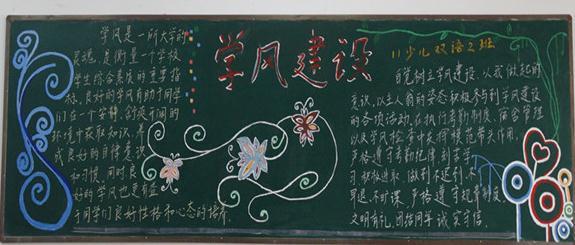 学风是一所大学的
灵魂,是衡量一个学校
学生综合素质的重要指
标,良好的学风有助于同学
们在一个安静,舒爽开阔的
环境中获取知识,养
成良好的自律意识
和习惯,同时良
好的学风也更有益
于同学们良好性格和心态的培养.
学风建设
11少儿双语2班
自觉树立学风建设,从我做起的
意识,以主人翁的姿态积极参与到学风建设
的各项活动,在执行考勤制度,宿舍管理
以及学风检查中发挥模范带头作用,
严格遵守考试纪律,刻苦学
习积极进取,做到不迟到,不
早退,不旷课,严格遵守规章制度,
文明有礼,团结同学,诚实守信.